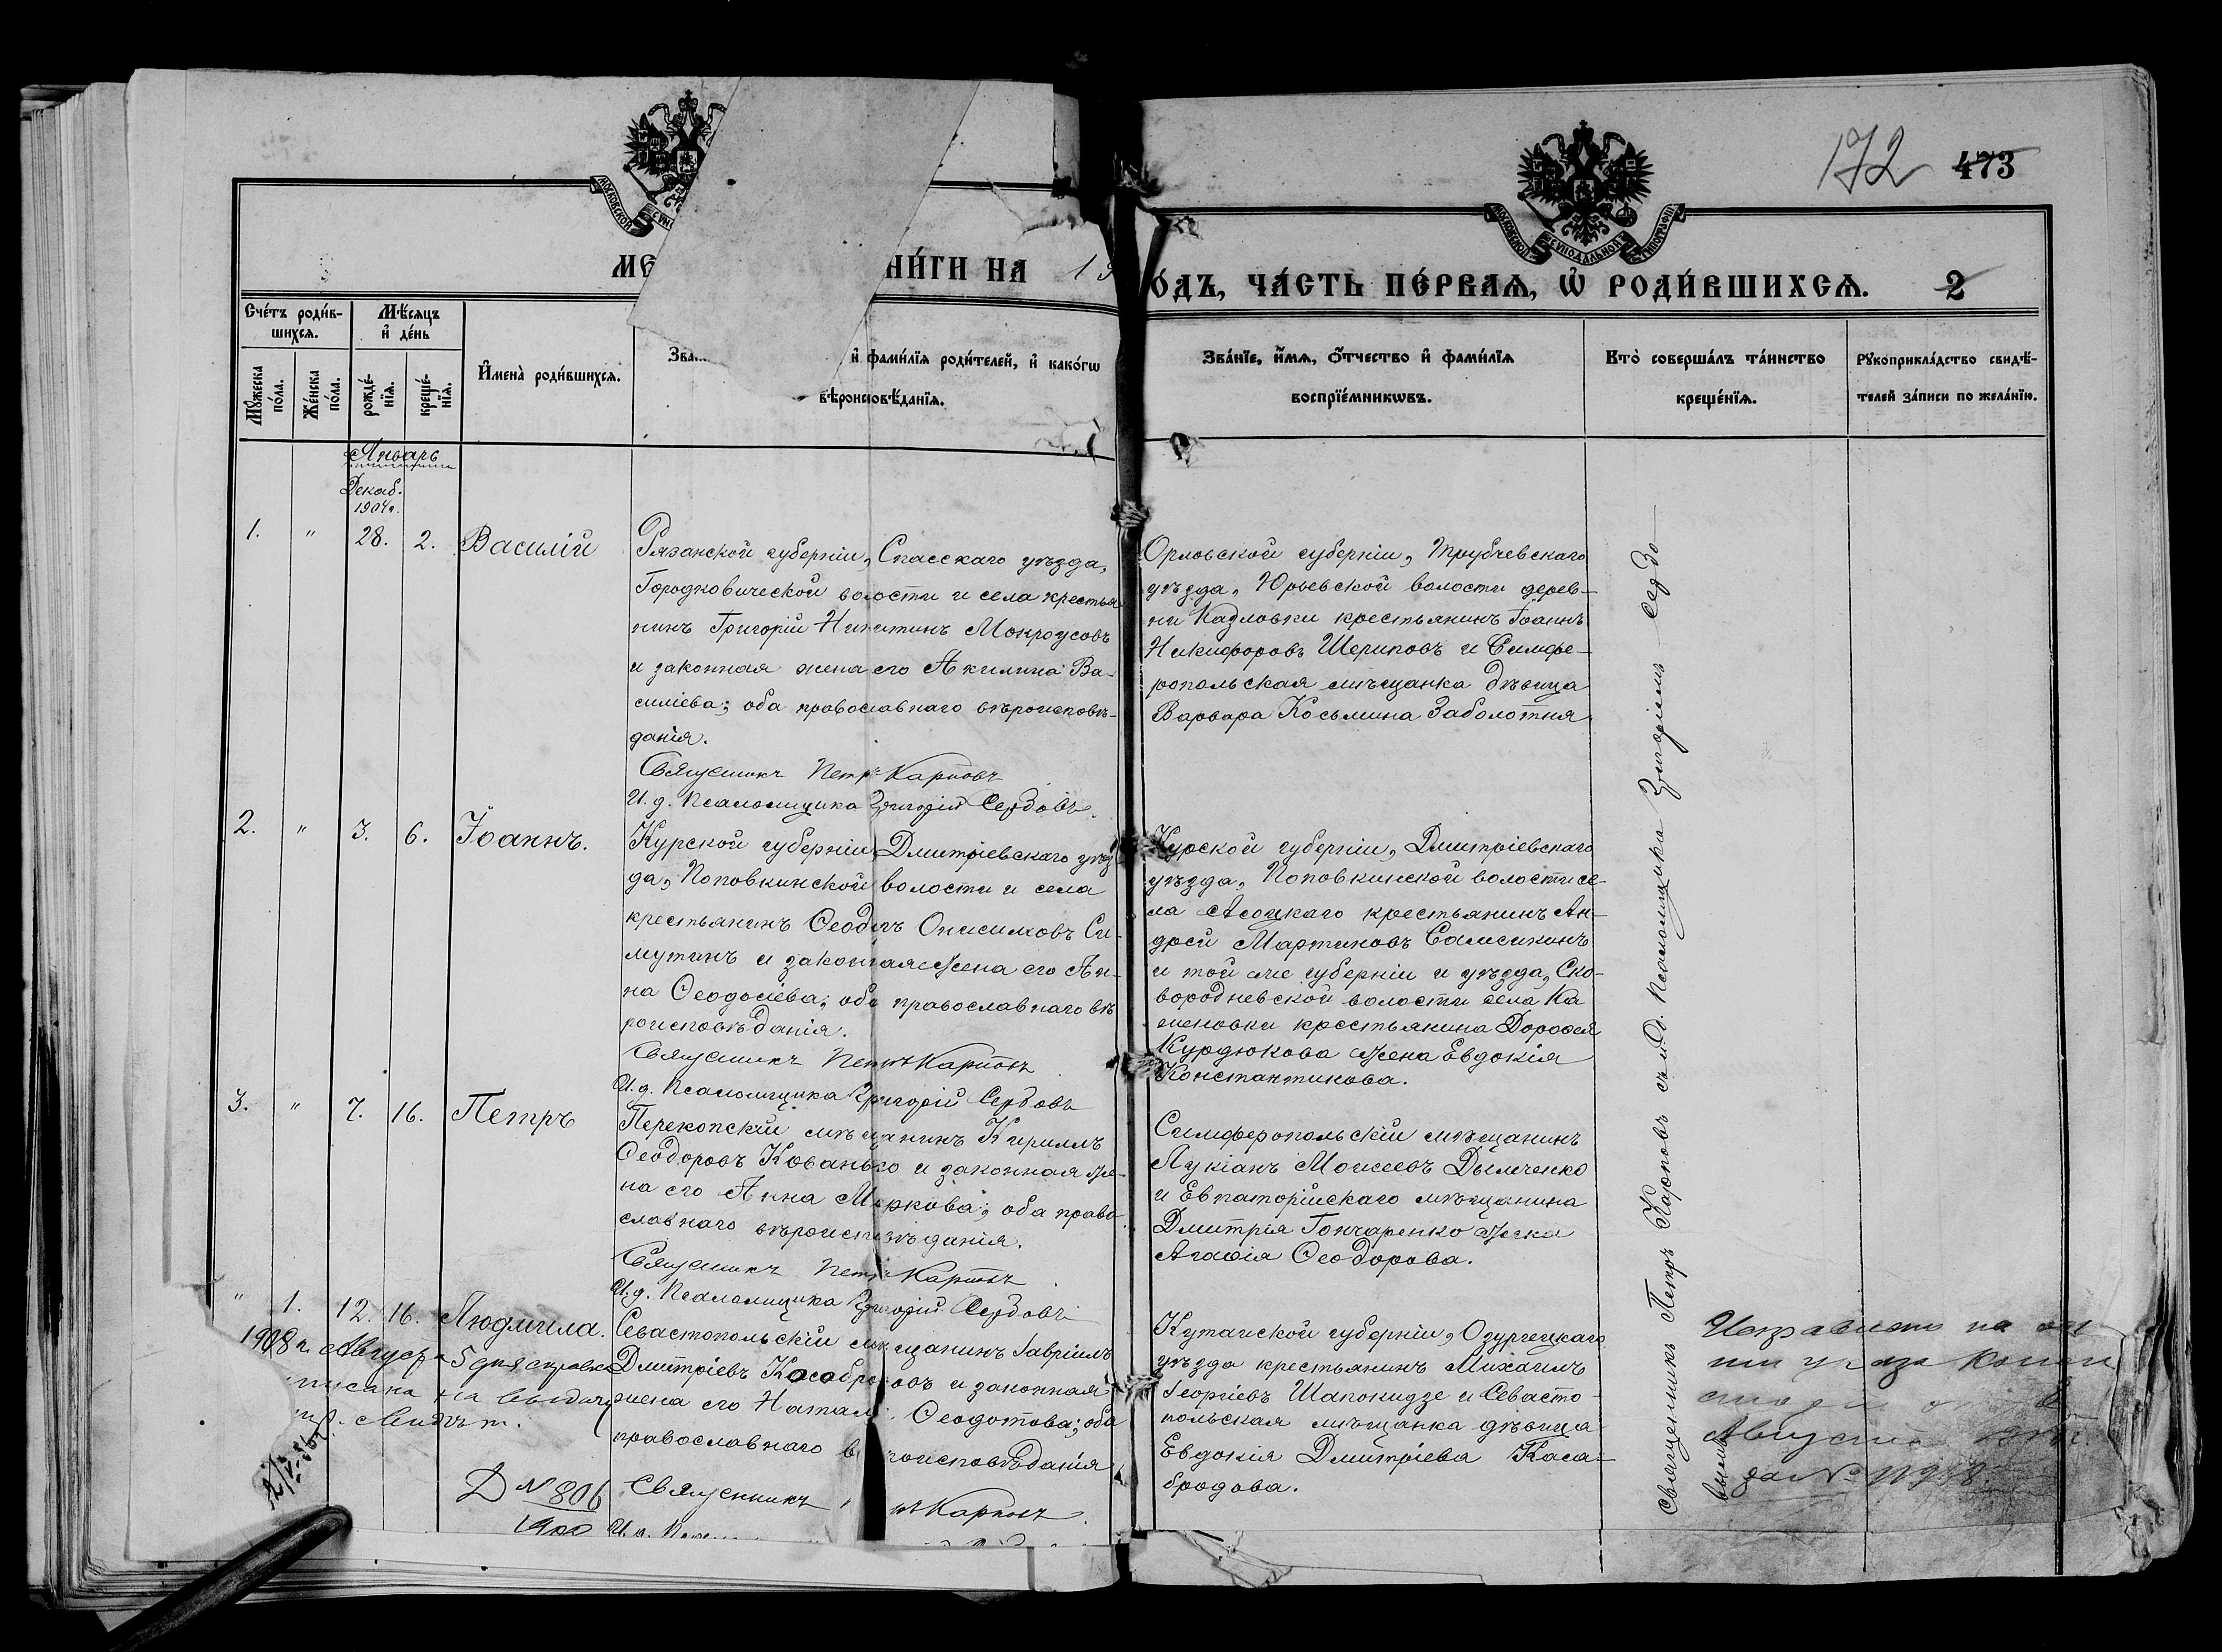 172 473
МОСКОВСКОЙ
МОСКОВСКОЙ СѴНОДАЛЬНОЙ ТИПОГРАФІИ
МЕ
НИ́ГИ НА 19
ОДЪ, ЧА́СТЬ ПЕ́РВАѦ, Ѡ҆ РОДИ́ВШИХСѦ. 2
Сче́тъ роди́в-
шихсѧ.
Мꙋ́жеска по́ла.
Же́нска по́ла.
Мѣ́сѧцъ
и҆ де́нь
рожде́-
нїѧ.
креще́-
нїѧ.
И҆мена̀ роди́вшихсѧ.
Зва
и҆ фами́лїѧ роди́телей, и҆ како́гѡ
вѣроисповѣ́данїѧ.
Зва́нїе, и҆́мѧ, ѻ҆́тчество и҆ фами́лїѧ
воспрїе́мникѡвъ.
Кто̀ соверша́лъ та́инство
креще́нїѧ.
Рꙋкоприкла́дство свидѣ́-
телей за́писи по жела́нїю.
Январь
Декаб.
1904 г.
1. " 28. 2. Василій
Рязанской губерніи, Спасскаго уѣзда,
Городковической волости и села крестья
нинъ Григорій Никитинъ Мокроусовъ
и законная жена его Акилина Ва-
силіева; оба православнаго вѣроисповѣ-
данія.
Священникъ Петръ Карповъ
И. д. Псаломщика Григорій Сердовъ.
Орловской губерніи, Трубчевскаго
уѣзда, Юрьевской волости дерев-
ни Казловки крестьянинъ Іоаннъ
Никифоровъ Шериповъ и Симфе-
ропольская мѣщанка дѣвица
Варвара Косьмина Заболотняя
2. " 3. 6. Іоаннъ.
Курской губерніи, Дмитріевскаго уѣз
да, Поповкинской волости и села
крестьянинъ Ѳеодоръ Онисимовъ Си-
мутинъ и законная жена его Ан-
на Ѳеодосіева; оба православнаго вѣ
роисповѣданія.
Священникъ Петръ Карповъ
И. д. Псаломщика Григорій Сердовъ
Курской губерніи, Дмитріевскаго
уѣзда, Поповкинской волости се-
ла Асоцкаго крестьянинъ Ан-
дрей Мартиновъ Самсикинъ
и той же губерніи и уѣзда, Ско-
вородневской волости села Ка
меновки крестьянина Дороѳея
Курдюкова жена Евдокія
Константинова.
3. " 7. 16. Петръ
Перекопскій мѣщанинъ Кириллъ
Ѳеодоровъ Кованько и законная же-
на его Анна Маркова; оба право
славнаго вѣроисповѣданія.
Священникъ Петръ Карповъ
И. д. Псаломщика Григорій Сердовъ
Симферопольскій мѣщанинъ
Лукіанъ Моисеевъ Дымченко
и Евпаторійскаго мѣщанина
Дмитрія Гончаренко жена
Агаѳія Ѳеодорова.
" 1. 12. 16. Людмила.
Севастопольскій мѣщанинъ Гавріилъ
Дмитріевъ Косабро овъ и законная
жена его Натал Ѳеодотова; оба
православнаго в роисповѣданія
Священникъ ръ Карповъ.
Кутаиской губерніи, Озургецкаго
уѣзда крестьянинъ Михаилъ
Георгіевъ Шапокидзе и Севасто-
польская мѣщанка дѣвица
Евдокія Дмитріева Каса-
бродова.
1908 г. Августа 5 дня
писана на выдачу
свидѣт.
D N 806
1900
Священникъ Петръ Карповъ съ и. д. Псаломщика Григоріемъ Сердо-
вымъ
Исправлено на
указа
Августа
за № 11958